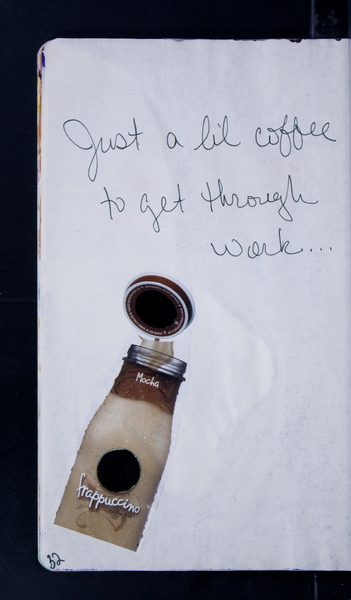 Just a lil coffee
to get through
work...
Mocha
frappuccino
32